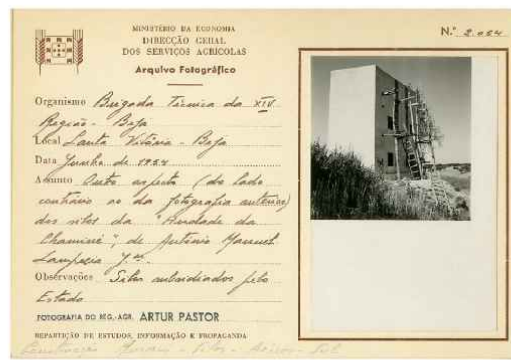 MINISTÉRIO DA ECONOMIA
DIRECÇÃO GERAL
DOS SERVIÇOS AGRÍCOLAS
Arquivo Fotográfico
N.º 2.024
Organismo Brigada Técnica da XIV
Região - Beja
Local Santa Vitória - Beja
Data Junho de 1954
Assunto Outro aspecto (do lado
contrário ao da fotografia anterior)
dos silos da "Herdade da
Chaminé", de António Manuel
Lampreia J.or
Observações Silos subsidiados pelo
Estado
FOTOGRAFIA DO REG.-AGR. ARTUR PASTOR
REPARTIÇÃO DE ESTUDOS, INFORMAÇÃO E PROPAGANDA